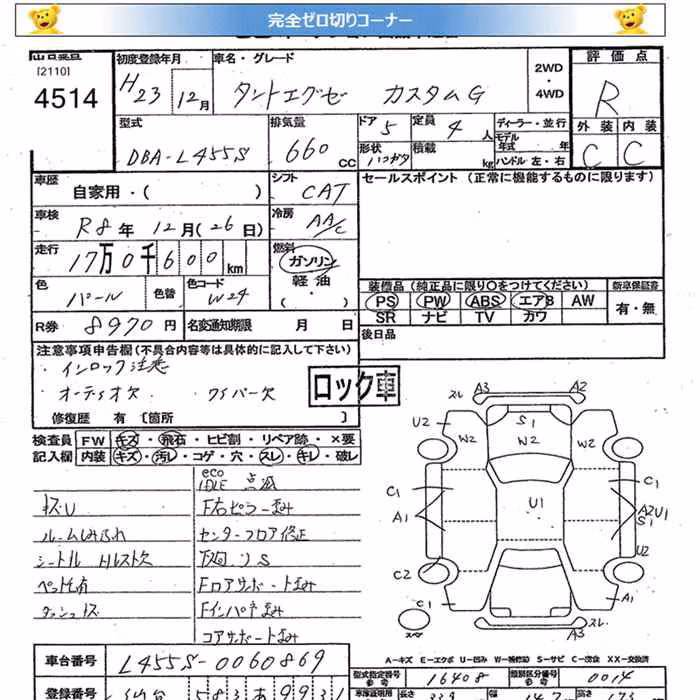 完全ゼロ切りコーナー
[2110]
4514
初度登録年月
H23 12月
車名・グレード
タントエグゼ カスタムG
2WD
・
4WD
評価点
R
型式
DBA-L455S
排気量
660 CC
ドア 5
定員 4 人
ディーラー・並行
モデル年式 年
形状 ハコガタ
積載 kg
ハンドル 左・右
外装 内装
C C
車歴
自家用・( )
シフト
CAT
セールスポイント(正常に機能するものに限ります)
車検
R8年 12月(26日)
冷房
AA/C
走行
17万0千600km
燃料
ガソリン
軽油
・( )
色
パール
色替
色コード
W24
装備品(純正品に限り○をつけてください)
新車保証書
PS PW ABS エアB AW
有・無
SR ナビ TV カワ
R券 8970円
名変通知期限 月 日
後日品
注意事項申告欄(不具合内容等は具体的に記入して下さい)
インロック注意
オーディオ欠 ワイパー欠
ロック車
修復歴 有 [箇所 ]
検査員 FW キズ・飛石・ヒビ割・リペア跡・×要
記入欄 内装 キズ・汚レ・コゲ・穴・スレ・キレ・破レ
eco
IDLE 点滅
キズU
F右ピラー歪み
センターフロア修正
下廻りS
Fロアサポート歪み
Fインパネ歪み
コアサポート歪み
A3 A2
スレ
S1
U2 W2 W2 W2
C1
A1
U1
A2U1
S1
C1
U2
C2
C1
A1
スペア
スレ
A3
A-キズ E-エクボ U-凹み W-補修跡 S-サビ C-腐食 XX-交換済
車台番号 L455S-0060869
型式指定番号 16408
類別区分番号 0014
登録番号
長さ